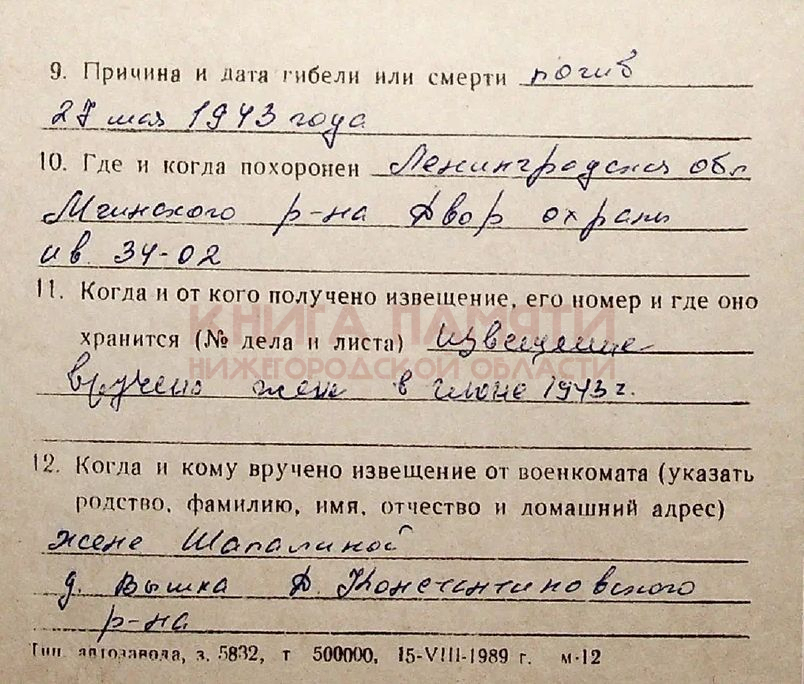 9. Причина и дата гибели или смерти погиб
27 мая 1943 года
10. Где и когда похоронен Ленинградская обл
Мгинского р-на Двор охраны
кв. 34-02
11. Когда и от кого получено извещение, его номер и где оно
хранится (№ дела и листа) извещение
КНИГА ПАМЯТИ
НИЖЕГОРОДСКОЙ ОБЛАСТИ
вручено жене в июне 1943 г.
12. Когда и кому вручено извещение от военкомата (указать
родство, фамилию, имя, отчество и домашний адрес)
жене Шапалиной
д. Вышка Д. Константиновского
р-на
Тип. автозавода, з. 5832, т 500000, 15-VIII-1989 г. м-12